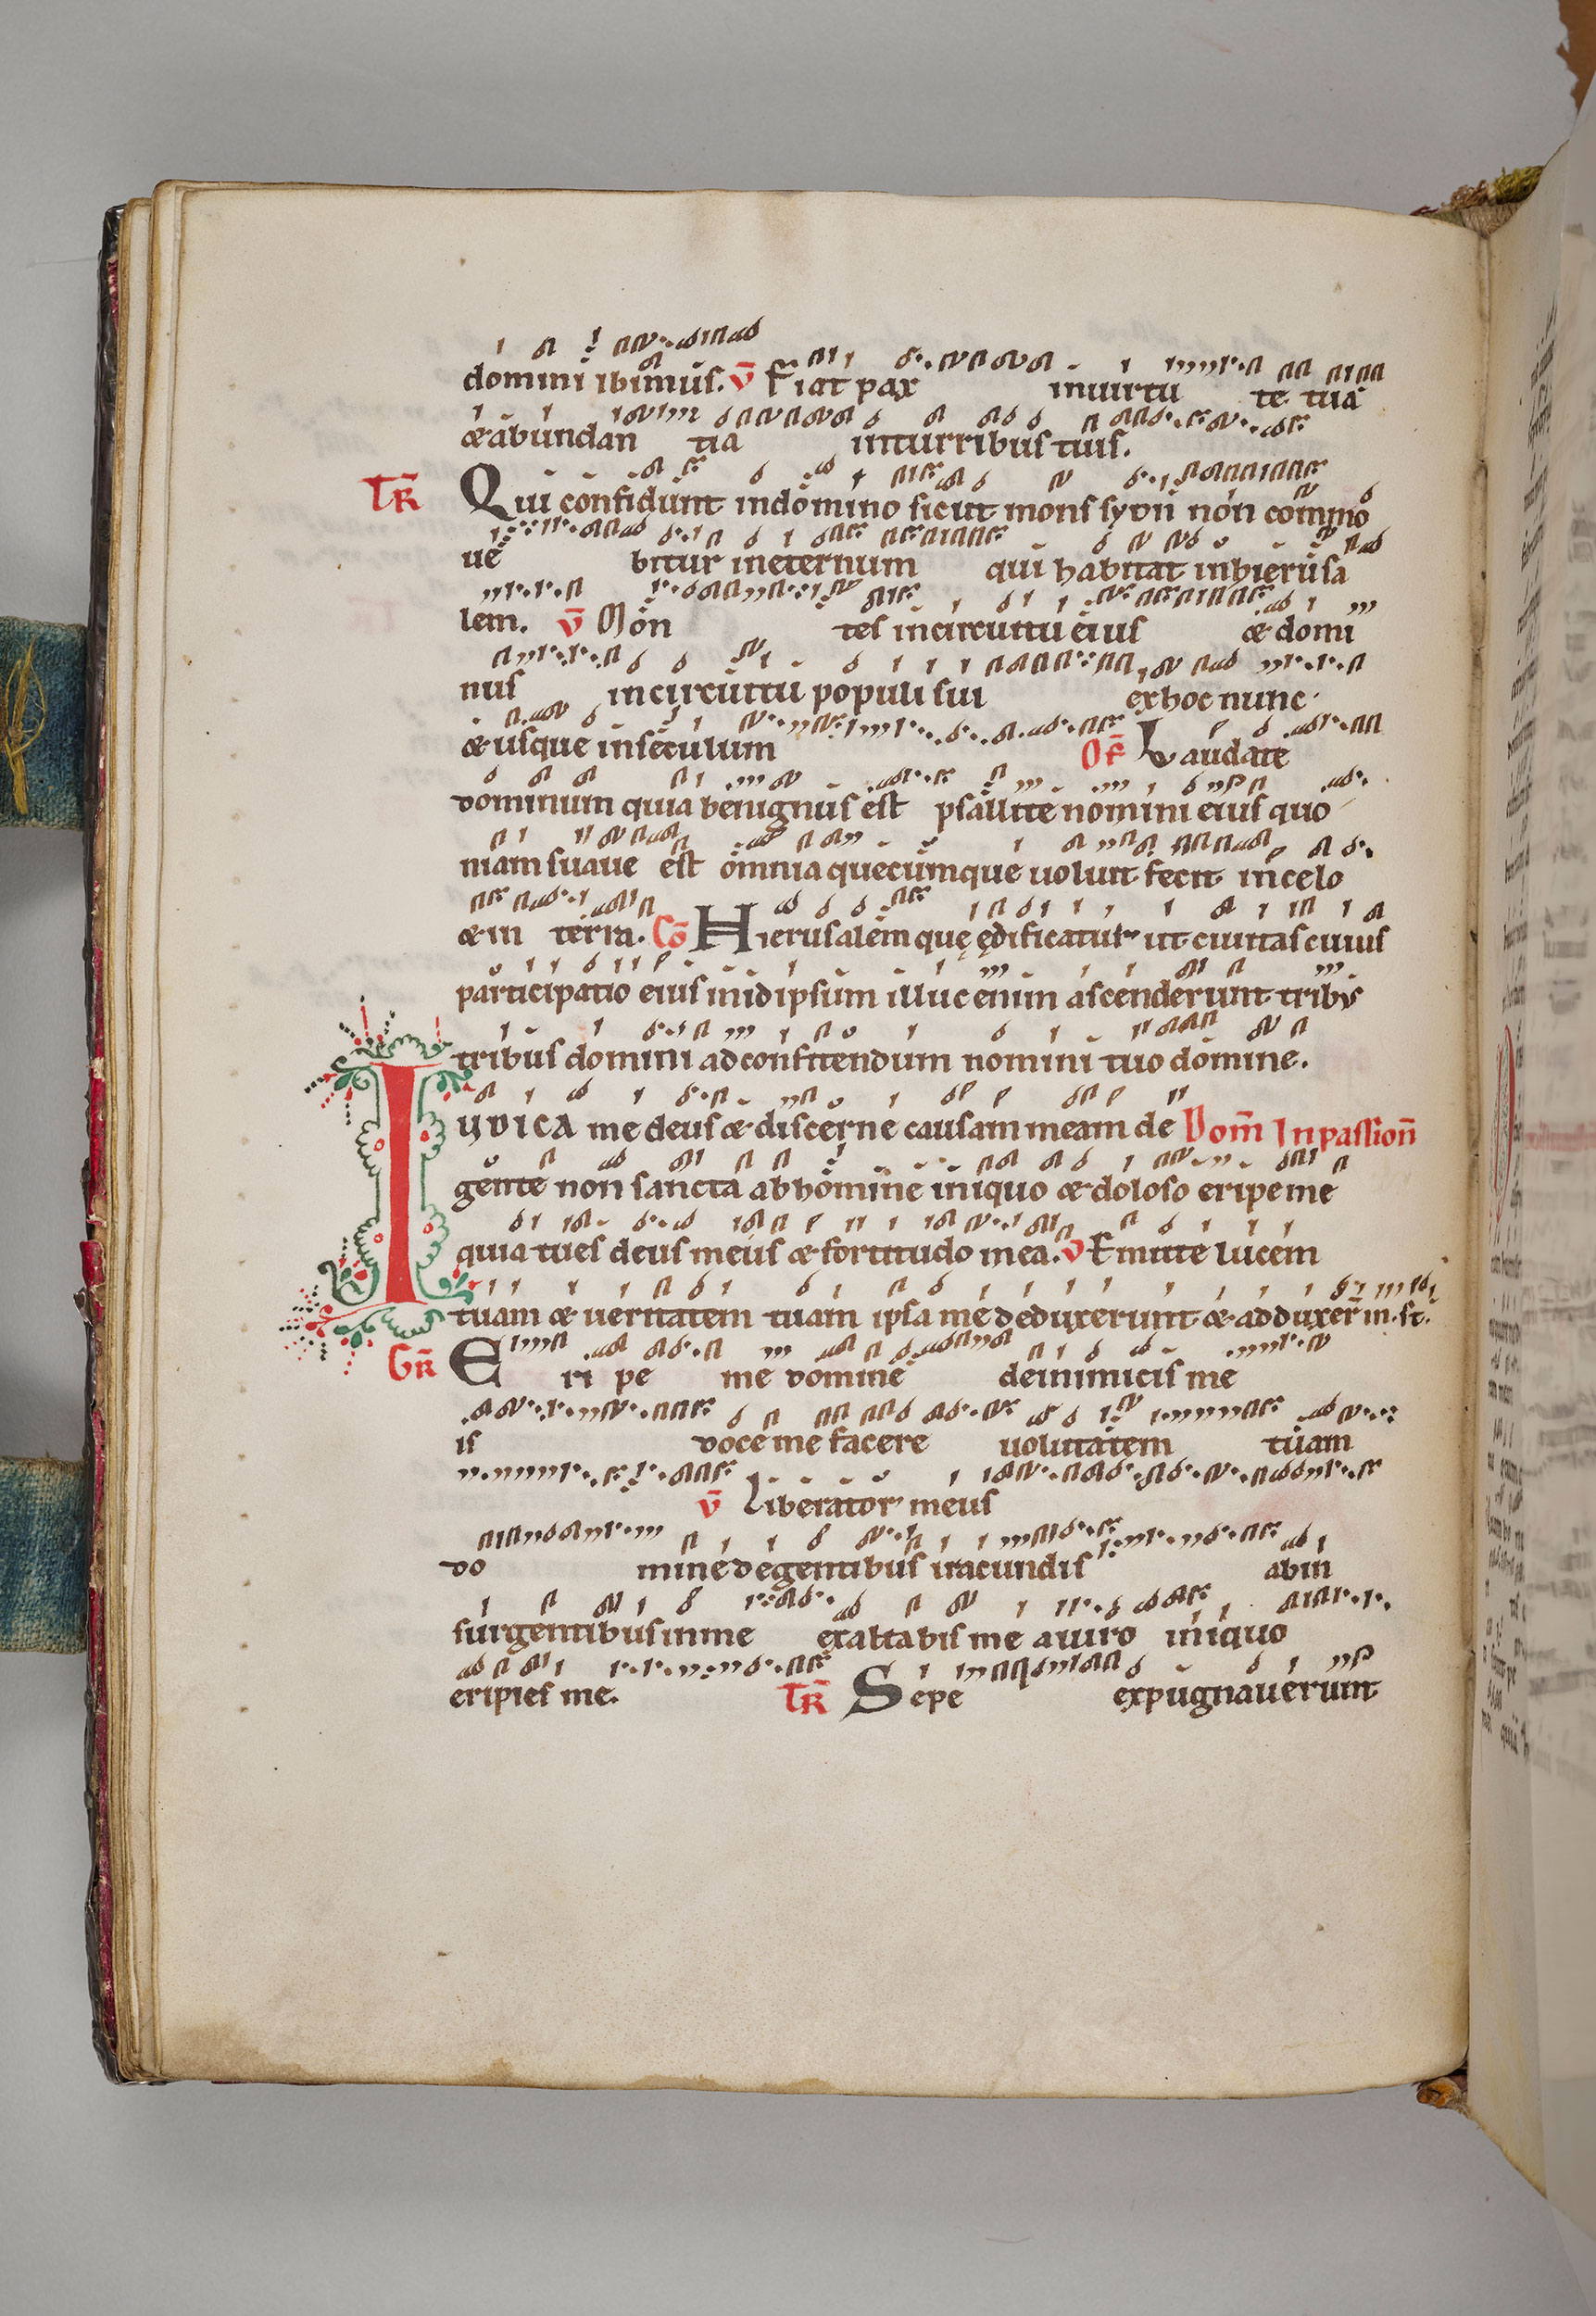 domini ibimus. v̄ Fiat pax inuirtu te tua
& abundan tia inturribus tuis.
TR̄ Qui confidunt indomino sicut mons syon non commo
ue bitur ineternum qui habitat inhierusa
lem. v̄ Mon tes incircuitu eius & domi
nus incircuitu populi sui exhoc nunc
& usque inseculum OF̄ Laudate
dominum quia benignus est psallite nomini eius quo
niam suaue est omnia quecumque uoluit fecit incelo
& in terra. Cō Hierusalem quę ędificatur ut ciuitas cuius
participatio eius inidipsum illuc enim ascenderunt tribus
tribus domini adconfitendum nomini tuo domine.
IUDICA me deus & discerne causam meam de Dom̄ In passion̄
gente non sancta abhomine iniquo & doloso eripe me
quia tu es deus meus & fortitudo mea. v̄ Emitte lucem
tuam & ueritatem tuam ipsa me deduxerunt & adduxer̄ in. st.
GR̄ Eri pe me domine deinimicis me
is doce me facere uoluntatem tuam
v̄ Liberator meus
do mine degentibus iracundis abin
surgentibus inme exaltabis me auiro iniquo
eripies me. TR̄ Sepe expugnauerunt